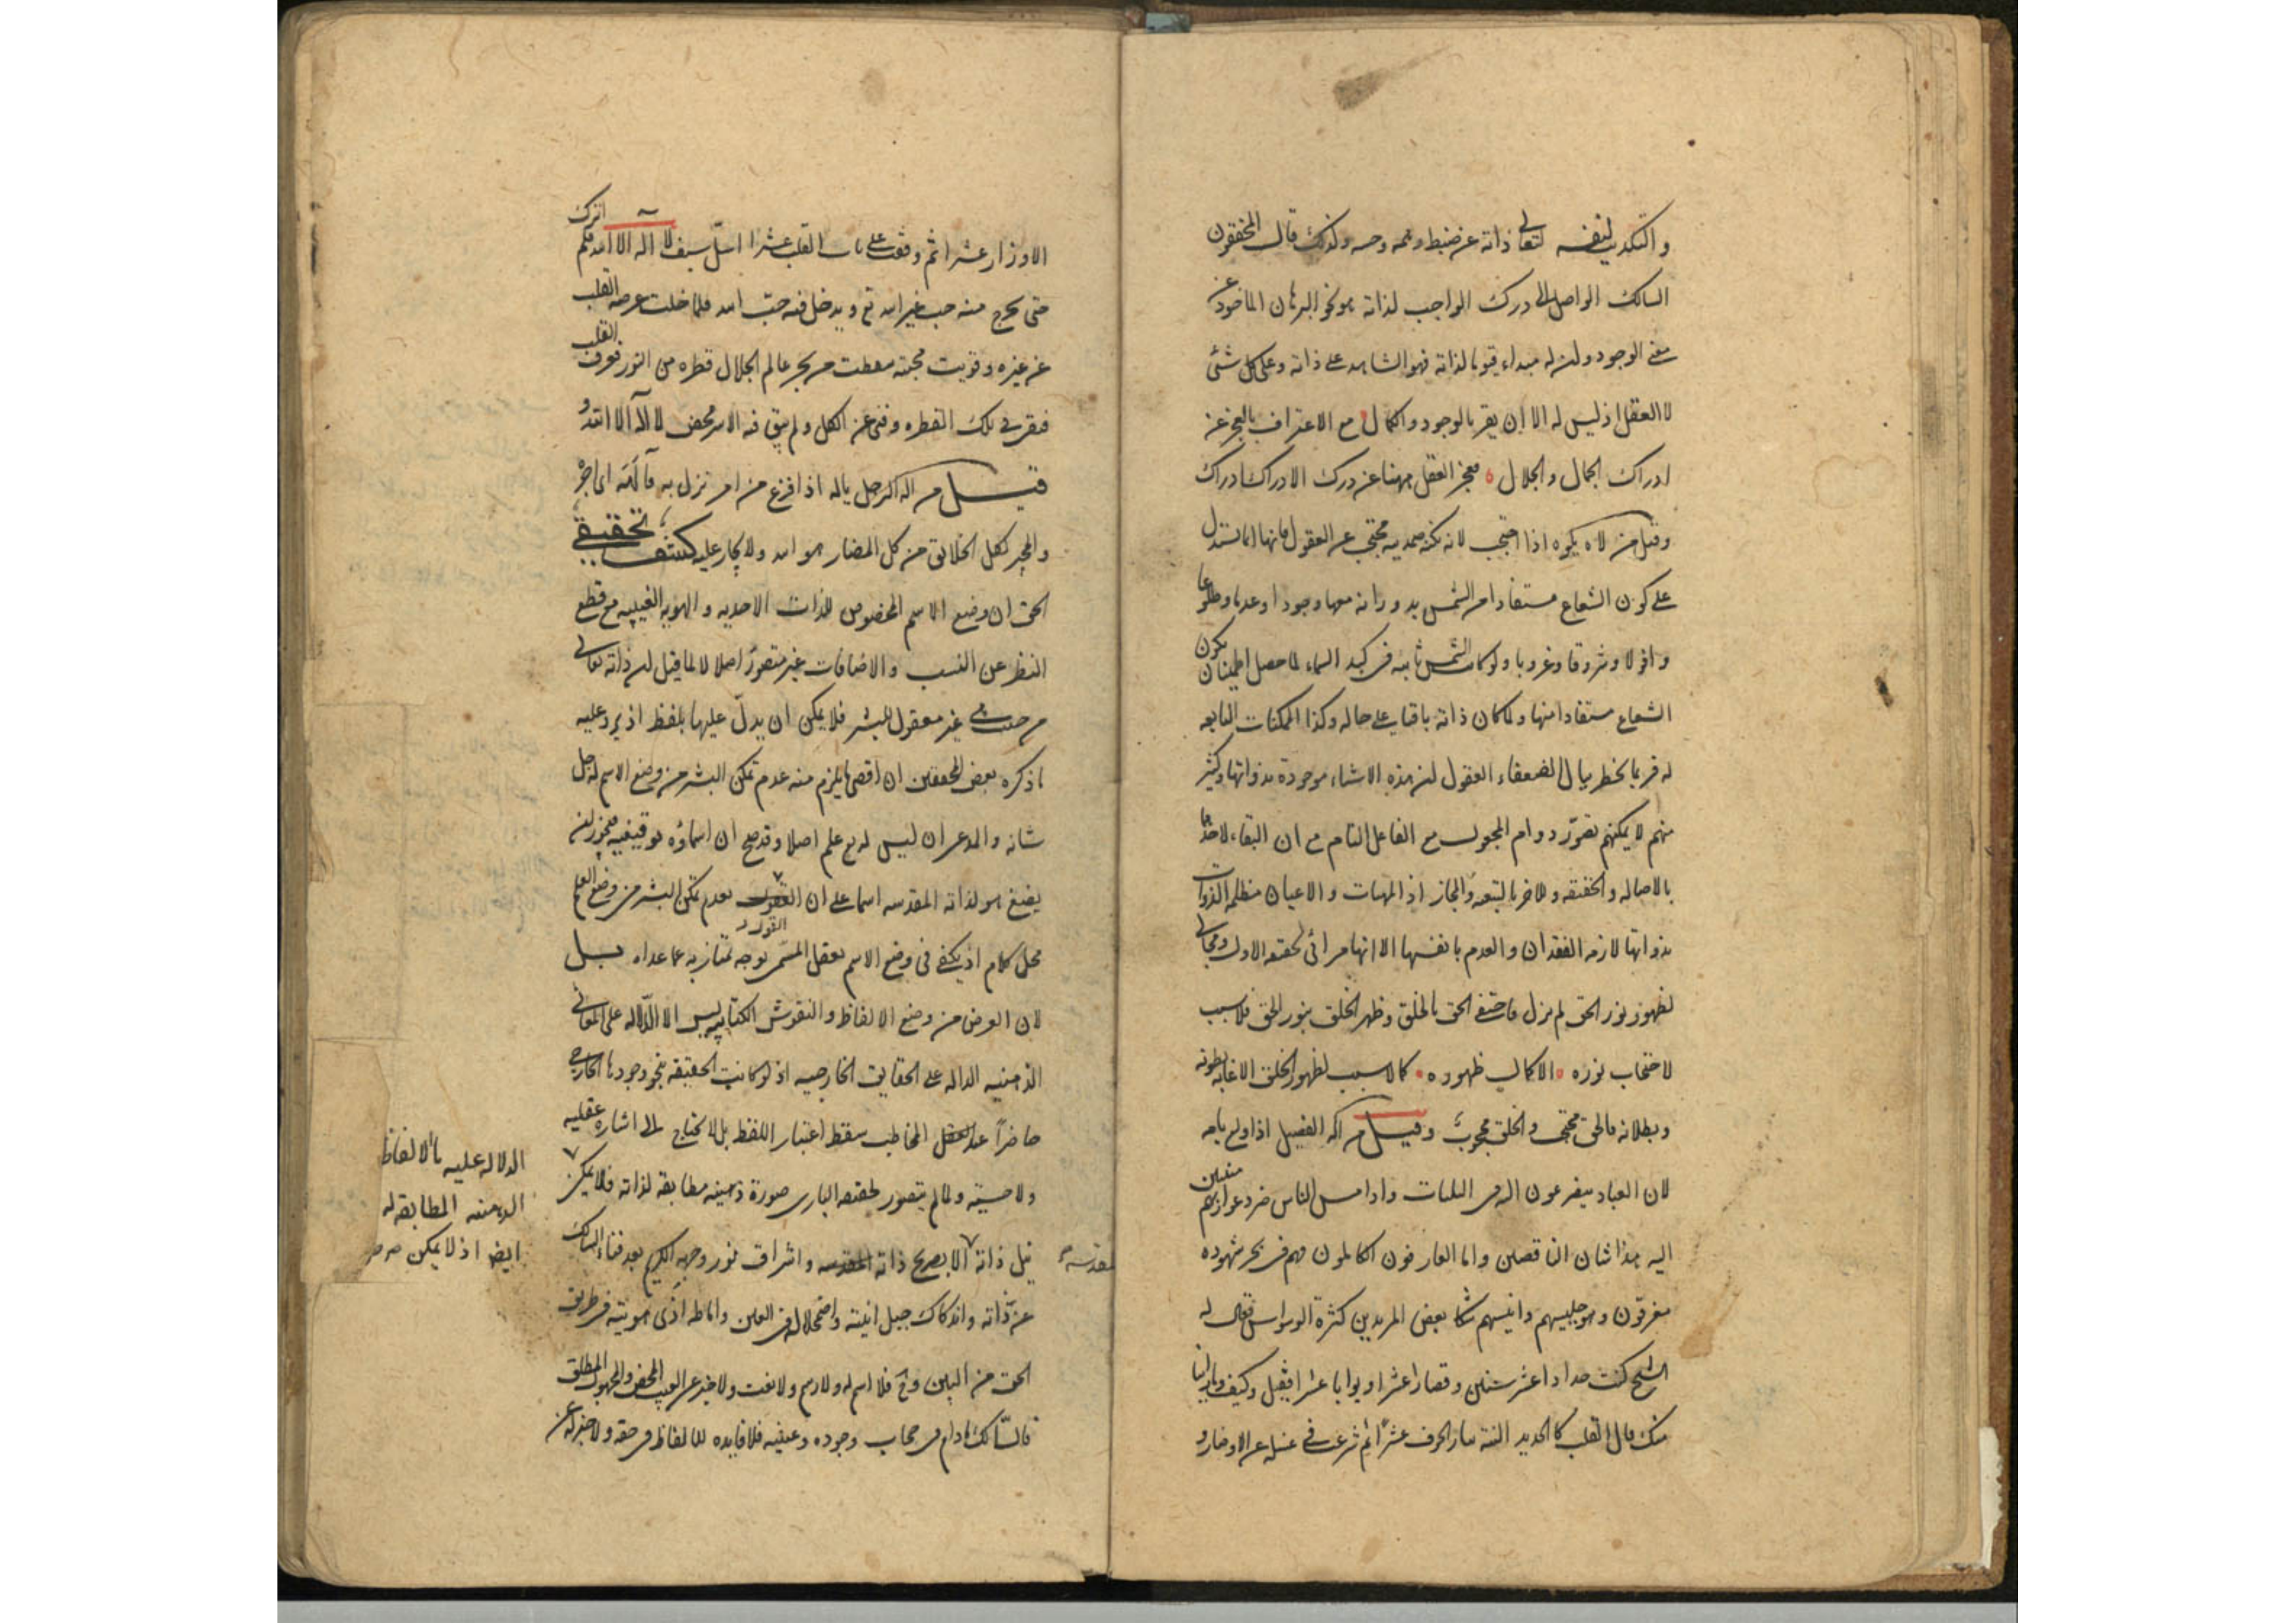 والتكديب لنفسه لتعالى ذاته عن ضبط وهمه وحسه وكذلك قال المحققون
السالك الواصل الى درك الواجب لذاته هو نحو البرهان الماخوذ عن
معنى الوجود ولن له مبداء قيوما لذاته فهو الشاهد على ذاته وعلى كل شئ
لا العقل اذ ليس له الا ان يقر بالوجود والكمال مع الاعتراف بالعجز عن
ادراك الجمال والجلال فعجز العقل ههنا عن درك الادراك ادراك
وقيل من لاه يلوه اذا احتجب لانه بكنه صمديه محتجب عن العقول فانها انما تستدل
على كون الشعاع مستفادا من الشمس بدورانه معها وجودا وعدما وطلوعا
وافولا وشروقا وغروبا ولو كانت الشمس ثابته فى كبد السماء لما حصل اطمينان بكون
الشعاع مستفادا منها ولما كان ذاته باقيا على حاله وكذا الممكنات التابعه
له فربما يخطر ببال الضعفاء العقول لن هذه الاشياء موجودة بذواتها وكثير
منهم لا يمكنهم تصور دوام المجعول مع الفاعل التام مع ان البقاء لاحدهما
بالاصاله والحقيقه وللاخر بالتبعه والمجاز اذ المهيات والاعيان منظلمه الذوات
بذواتها لازمه الفقدان والعدم بانفسها الا انها مرائى لحقيقه الاول ومجالى
لظهور نور الحق لم يزل فاختفى الحق بالخلق وظهر الخلق بنور الحق فلا سبب
لاحتجاب نوره الا كمال ظهوره كما لا سبب لظهور الخلق الا غايه بطونه
وبطلانه فالحق محتجب والخلق محجوب وقيل من اله الفصيل اذا ولع بامه
لان العباد يتضرعون اليه فى البليات واذا مس الناس ضر دعوا ربهم منيبين
اليه هذا شان الناقصين واما العارفون الكاملون فهم فى بحر شهوده
مغرقون وهو جليسهم وانيسهم شكا بعض المريدين كثرة الوسواس فقال له
الشيخ كنت حدادا عشر سنين وقصارا عشرا وبوابا عشرا فقيل وكيف وما راينا
منك قال القلب كالحديد النته بنار الخوف عشرا ثم شرعت فى غسله عن الاوضار و
الاوزار عشرا ثم وقفت على باب القلب عشرا اسل سيف لا اله الا الله فلم اترك
حتى يخرج منه حب غير الله تع ويدخل فيه حب الله فلما خلت عرصه القلب
عن غيره وقويت محبته سقطت من بحر عالم الجلال قطره من النور فغرق القلب
فى تلك القطره وفنى عن الكل ولم يبق فيه الا سر محض لا اله الا الله و
قيل من اله الرجل ياله اذا فزع من امر نزل به فآلهه اى اجره
والمجير لكل الخلائق من كل المضار هو الله ولا يجار عليه كشف تحقيقى
الحق ان وضع الاسم المخصوص للذات الاحديه والهويه الغيبيه مع قطع
النظر عن النسب والاضافات غير متصور اصلا لا لما قيل لن ذاته تعالى
من حيث هى غير معقول للبشر فلا يمكن ان يدل عليها بلفظ اذ يرد عليه
ما ذكره بعض المحققين ان اقصى ما يلزم منه عدم تمكن البشر من وضع الاسم له جل
شانه والمدعى ان ليس له تع علم اصلا وقد صح ان اسماؤه توقيفيه فيجوز لن
يضع هو لذاته المقدسه اسما على ان القول بعدم تمكن البشر من وضع العلم
القول
محل كلام اذ يكفى فى وضع الاسم تعقل المسمى بوجه يمتاز به عما عداه بل
لان الغرض من وضع الالفاظ والنقوش الكتابيه ليس الا الدلاله على المعانى
الذهنيه الداله على الحقايق الخارجيه اذ لو كانت الحقيقه بنحو وجودها الخارجى
حاضرا عند العقل المخاطب سقط اعتبار اللفظ بل لا يحتاج الى اشاره عقليه
ولا حسيه ولما لم يتصور لحقيقه البارى صورة ذهنيه مطابقه لذاته فلا يمكن
الدلاله عليه بالالفاظ
الذهنيه المطابقه له
ايضا اذ لا يمكن
نيل ذاته الا بصريح ذاته المقدسه واشراق نور وجهه الكريم بعد فناء السالك
مقدسه
عن ذاته واندكاك جبل انيته واضمحلاله فى العين واماطه اذى هويته فى طريق
الحق من البين وح فلا اسم له ولا رسم ولا نعت ولا خبر عن الغيب المحض والمجهول المطلق
فالسالك مادام فى حجاب وجوده وعينه فلا فايده للالفاظ فى حقه ولا خبر له عن